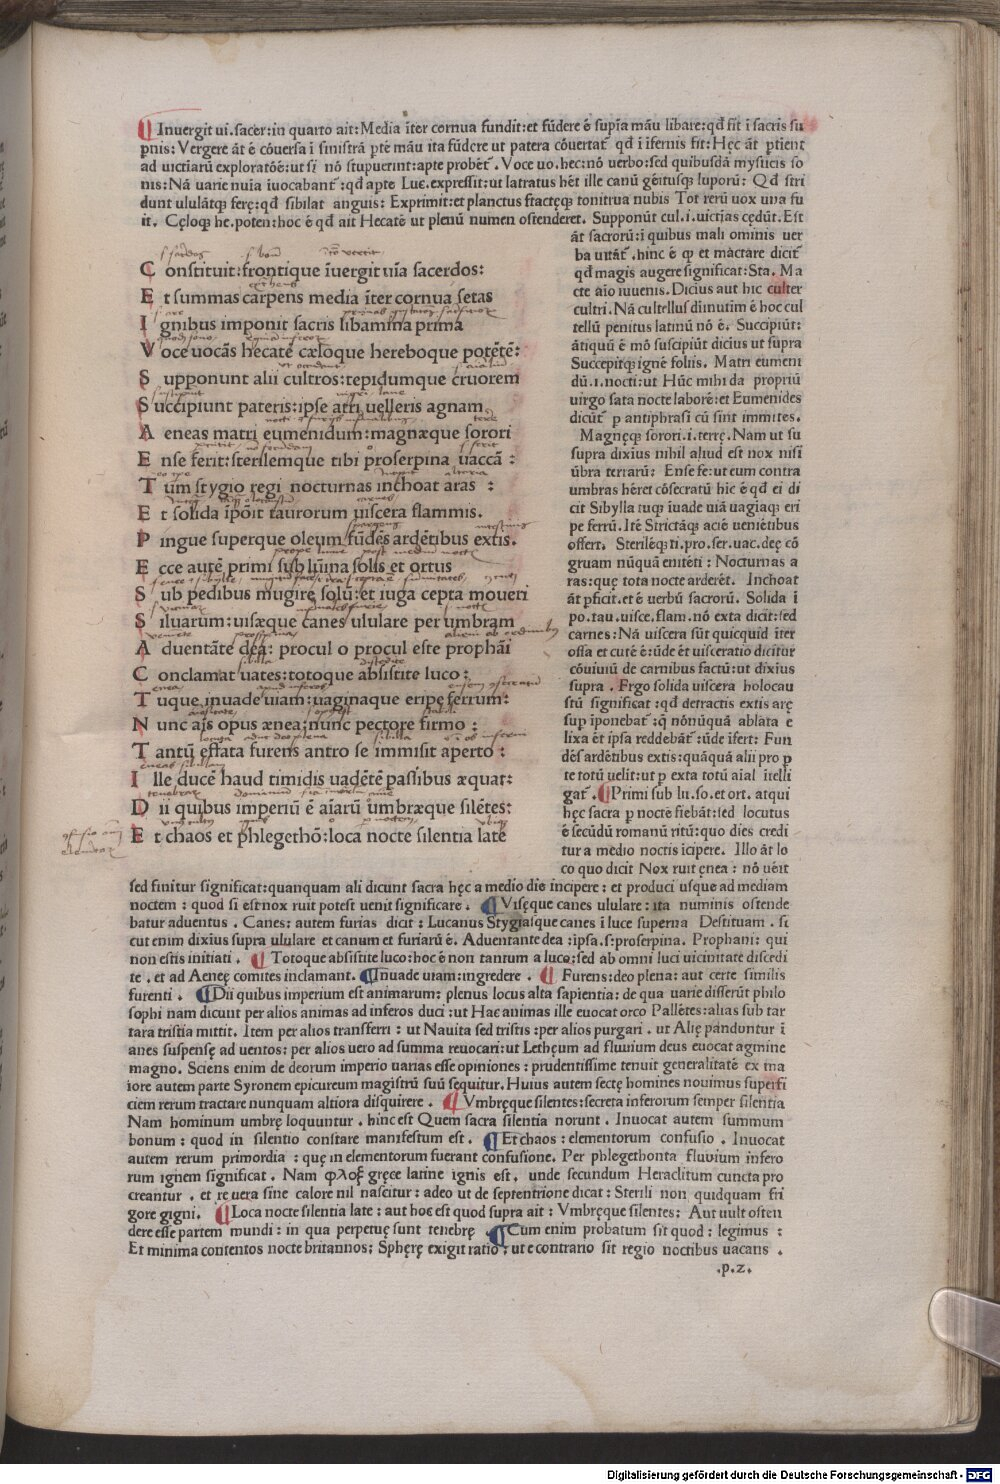 ¶ Inuergit ui.sacer:in quarto ait:Media īter cornua fundit:et fūdere ē supīa māu libare:qđ fit ī sacris su
pnis:Vergere āt ē cōuersa ī sinistrā ptē māu ita fūdere ut patera cōuertat᷑ qđ ī ifernis fit:Hęc āt ptient
ad uictiarū exploratōē:ut si nō stupuerint:apte probēt᷑. Voce uo.hec:nō uerbo:sed quibusdā mysticis so
nis:Nā uarie nuīa īuocabant᷑:qđ apte Luc.expressit:ut latratus hēt ille canū gēitusꝗ luporū: Qđ stri
dunt ululātꝗ ferę:qđ sibilat anguis: Exprimit:et planctus ftactęꝗ tonitrua nubis Tot rerū uox una fu
it. Cęloꝗ he.poten:hoc ē qđ ait Hecatē ut plenū numen ostenderet. Supponūt cul.i.uictīas cędūt.Est
āt sacrorū:ī quibus mali ominis uer
ba uitāt᷑.hinc ē ꝙ et mactare dicit᷑
qđ magis augere significat:Sta. Ma
cte aīo iuuenis.Dicius aut hic culter
cultri.Nā cultellus diīnutim ē hoc cul
tellū penitus latinū nō ē. Succipiūt:
ātiquū ē mō suscipiūt dicius ut supra
Succepitꝗ ignē foliis. Matri eumeni
dū.i.nocti:ut Hūc mihi da propriū
uirgo sata nocte laborē:et Eumenides
dicūt᷑ p antiphrasi cū sint immites.
Magnęꝗ sorori.i.terrę.Nam ut su
supra dixius nihil aliud est nox nisi
ūbra terrarū: Ense fe:ut eum contra
umbras hēret cōsecratū hic ē qđ ei di
cit Sibylla tuꝗ īuade uiā uagiaꝗ eri
pe ferrū.Itē Strictāꝗ aciē ueniētibus
offert. Sterilēꝗ ti.pro.ser.uac.deę cō
gruam nūquā enitēti: Nocturnas a
ras:quę tota nocte arderēt. Inchoat
āt pficit.et ē uerbū sacrorū. Solida ī
po.tau.uisce.flam.nō exta dicit:sed
carnes:Nā uiscera sūt quicquid īter
ossa et cutē ē:ūde ēt uisceratio dicitur
cōuiuiū de carnibus factū:ut dixius
supra. Frgo solida uiscera holocau
stū significat:qđ detractis extis arę
sup iponebat᷑:q̄ nōnūquā ablata e
lixa ēt ipsa reddebāt᷑:ūde īfert: Fun
dēs ardētibus extis:quāquā alii pro p
te totū uelit:ut p exta totū aīal ītelli
gat᷑.¶Primi sub lu.so.et ort. atqui
hęc sacra p nocte fiebāt:sed locutus
ē secūdū romanū ritū:quo dies credi
tur a medio noctis icipere. Illo āt lo
co quo dicit Nox ruit ęnea: nō uēit
C onstituit:frontique īuergit uīa sacerdos:
E t summas carpens media īter cornua setas
I gnibus imponit sacris libamina prima
V oce uocās hecatē cæloque hereboque potētē:
S upponunt alii cultros:tepidumque cruorem
S uccipiunt pateris:ipse atri uelleris agnam
A eneas matri eumenidum:magnæque sorori
E nse ferit:sterslemque tibi proserpina uaccā:
T um stygio regi nocturnas inchoat aras:
E t solida īpōit taurorum uiscera flammis.
P ingue superque oleum fūdēs ardētibus extis.
E cce autē primi sub lūīna solis et ortus
S ub pedibus mugire solū:et iuga cepta moueri
S iluarum:uisæque canes ululare per umbram
A duentāte dea: procul o procul este prophāi
C onclamat uates:totoque absistite luco:
T uque inuade uiam:uaginaque eripe ferrum:
N unc aīs opus ænea:nunc pectore firmo:
T antū effata furens antro se immisit aperto:
I lle ducē haud timidis uadētē passibus æquat:
D ii quibus imperiū ē aīarū umbræque silētes:
E t chaos et phlegethō:loca nocte silentia late
sed finitur significat:quanquam ali dicunt sacra hęc a medio die incipere: et produci usque ad mediam
noctem: quod si est nox ruit potest uenit significare. ¶ Visęque canes ululare: ita numinis ostende
batur aduentus. Canes: autem furias dicit: Lucanus Stygiasque canes ī luce superna Destituam. si
cut enim dixius supra ululare et canum et furiarū ē. Aduentante dea:ipsa.s:proserpina. Prophani: qui
non estis initiati. ¶ Totoque absistite luco:hoc ē non tantum a luco:sed ab omni luci uicinitate discedi
te. et ad Aeneę comites inclamant.¶Inuade uiam:ingredere. ¶ Furens:deo plena: aut certe similis
furenti. ¶Dii quibus imperium est animarum: plenus locus alta sapientia: de qua uarie disserūt philo
sophi nam dicunt per alios animas ad inferos duci:ut Hac animas ille euocat orco Pallētes:alias sub tar
tara tristia mittit. Item per alios transferri: ut Nauita sed tristis:per alios purgari. ut Alię panduntur ī
anes suspensę ad uentos: per alios uero ad summa reuocari:ut Lethęum ad fluuium deus euocat agmine
magno. Sciens enim de deorum imperio uarias esse opiniones: prudentissime tenuit generalitatē ex ma
iore autem parte Syronem epicureum magistrū suū sequitur.Huius autem sectę homines nouimus superfi
ciem rerum tractare nunquam altiora disquirere. ¶ Vmbręque silentes:secreta inferorum semper silentia
Nam hominum umbrę loquuntur. hinc est Quem sacra silentia norunt. Inuocat autem summum
bonum: quod in silentio constare manifestum est. ¶Et chaos: elementorum confusio. Inuocat
autem rerum primordia: quę in elementorum fuerant confusione. Per phlegethonta fluuium infero
rum ignem significat. Nam φλοξ gręce latine ignis est. unde secundum Heraclitum cuncta pro
creantur. et re uera sine calore nil nascitur: adeo ut de septentrione dicat: Sterili non quidquam fri
gore gigni. ¶Loca nocte silentia late: aut hoc est quod supra ait: Vmbręque silentes: Aut uult osten
dere esse partem mundi: in qua perpetuę sunt tenebrę ¶Cum enim probatum sit quod: legimus:
Et minima contentos nocte britannos: Sphęrę exigit ratio:ut e contrario sit regio noctibus uacans.
.p.z.
Digitalisierung gefördert durch die Deutsche Forschungsgemeinschaft - DFG